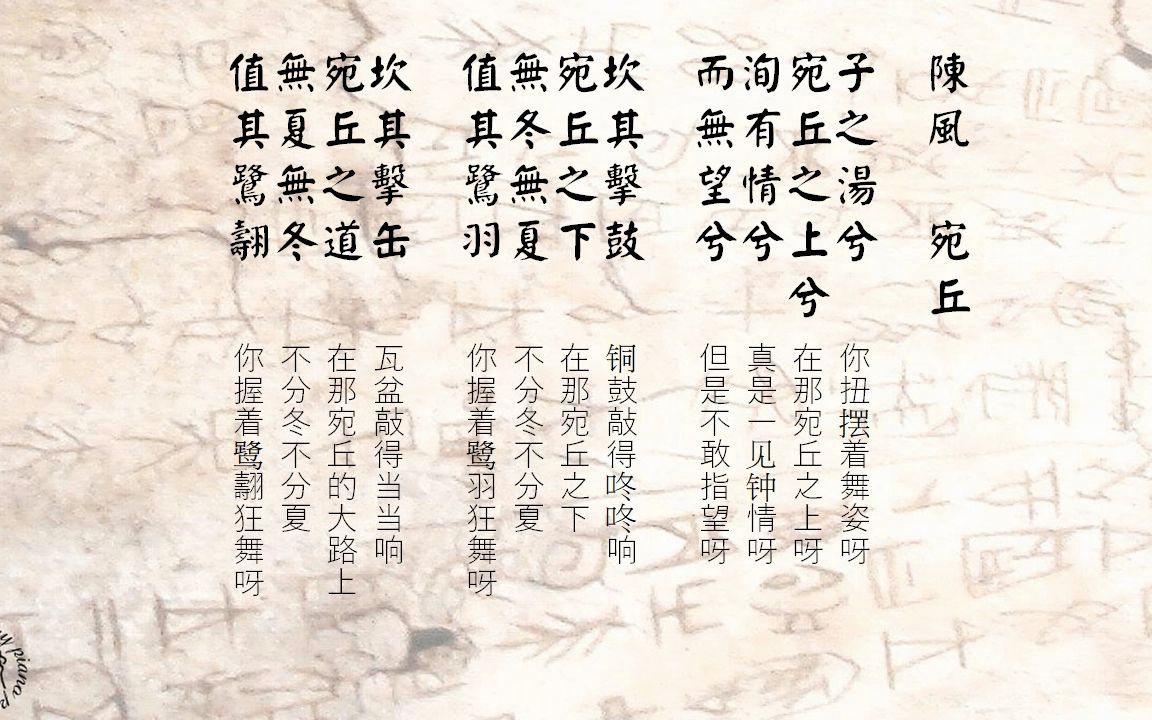 陳風 宛丘
子之湯兮
宛丘之上兮
洵有情兮
而無望兮
坎其擊鼓
宛丘之下
無冬無夏
值其鷺羽
坎其擊缶
宛丘之道
無夏無冬
值其鷺翿
你扭摆着舞姿呀
在那宛丘之上呀
真是一见钟情呀
但是不敢指望呀
铜鼓敲得咚咚响
在那宛丘之下
不分冬不分夏
你握着鹭羽狂舞呀
瓦盆敲得当当响
在那宛丘的大路上
不分冬不分夏
你握着鹭翿狂舞呀
piano